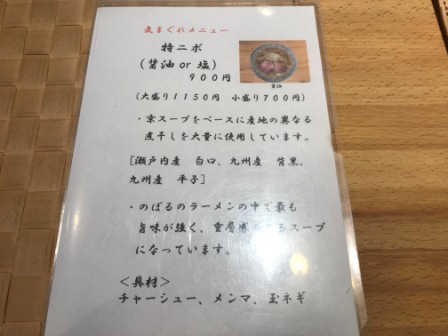 気まぐれメニュー
特ニボ
(醤油 or 塩)
900円
醤油
(大盛り1150円 小盛り700円)
・京スープをベースに産地の異なる
煮干しを大量に使用しています。
[瀬戸内産 白口、九州産 背黒、
九州産 平子]
・のばるのラーメンの中で最も
旨味が強く、重層感のあるスープ
になっています。
<具材>
チャーシュー、メンマ、玉ネギ